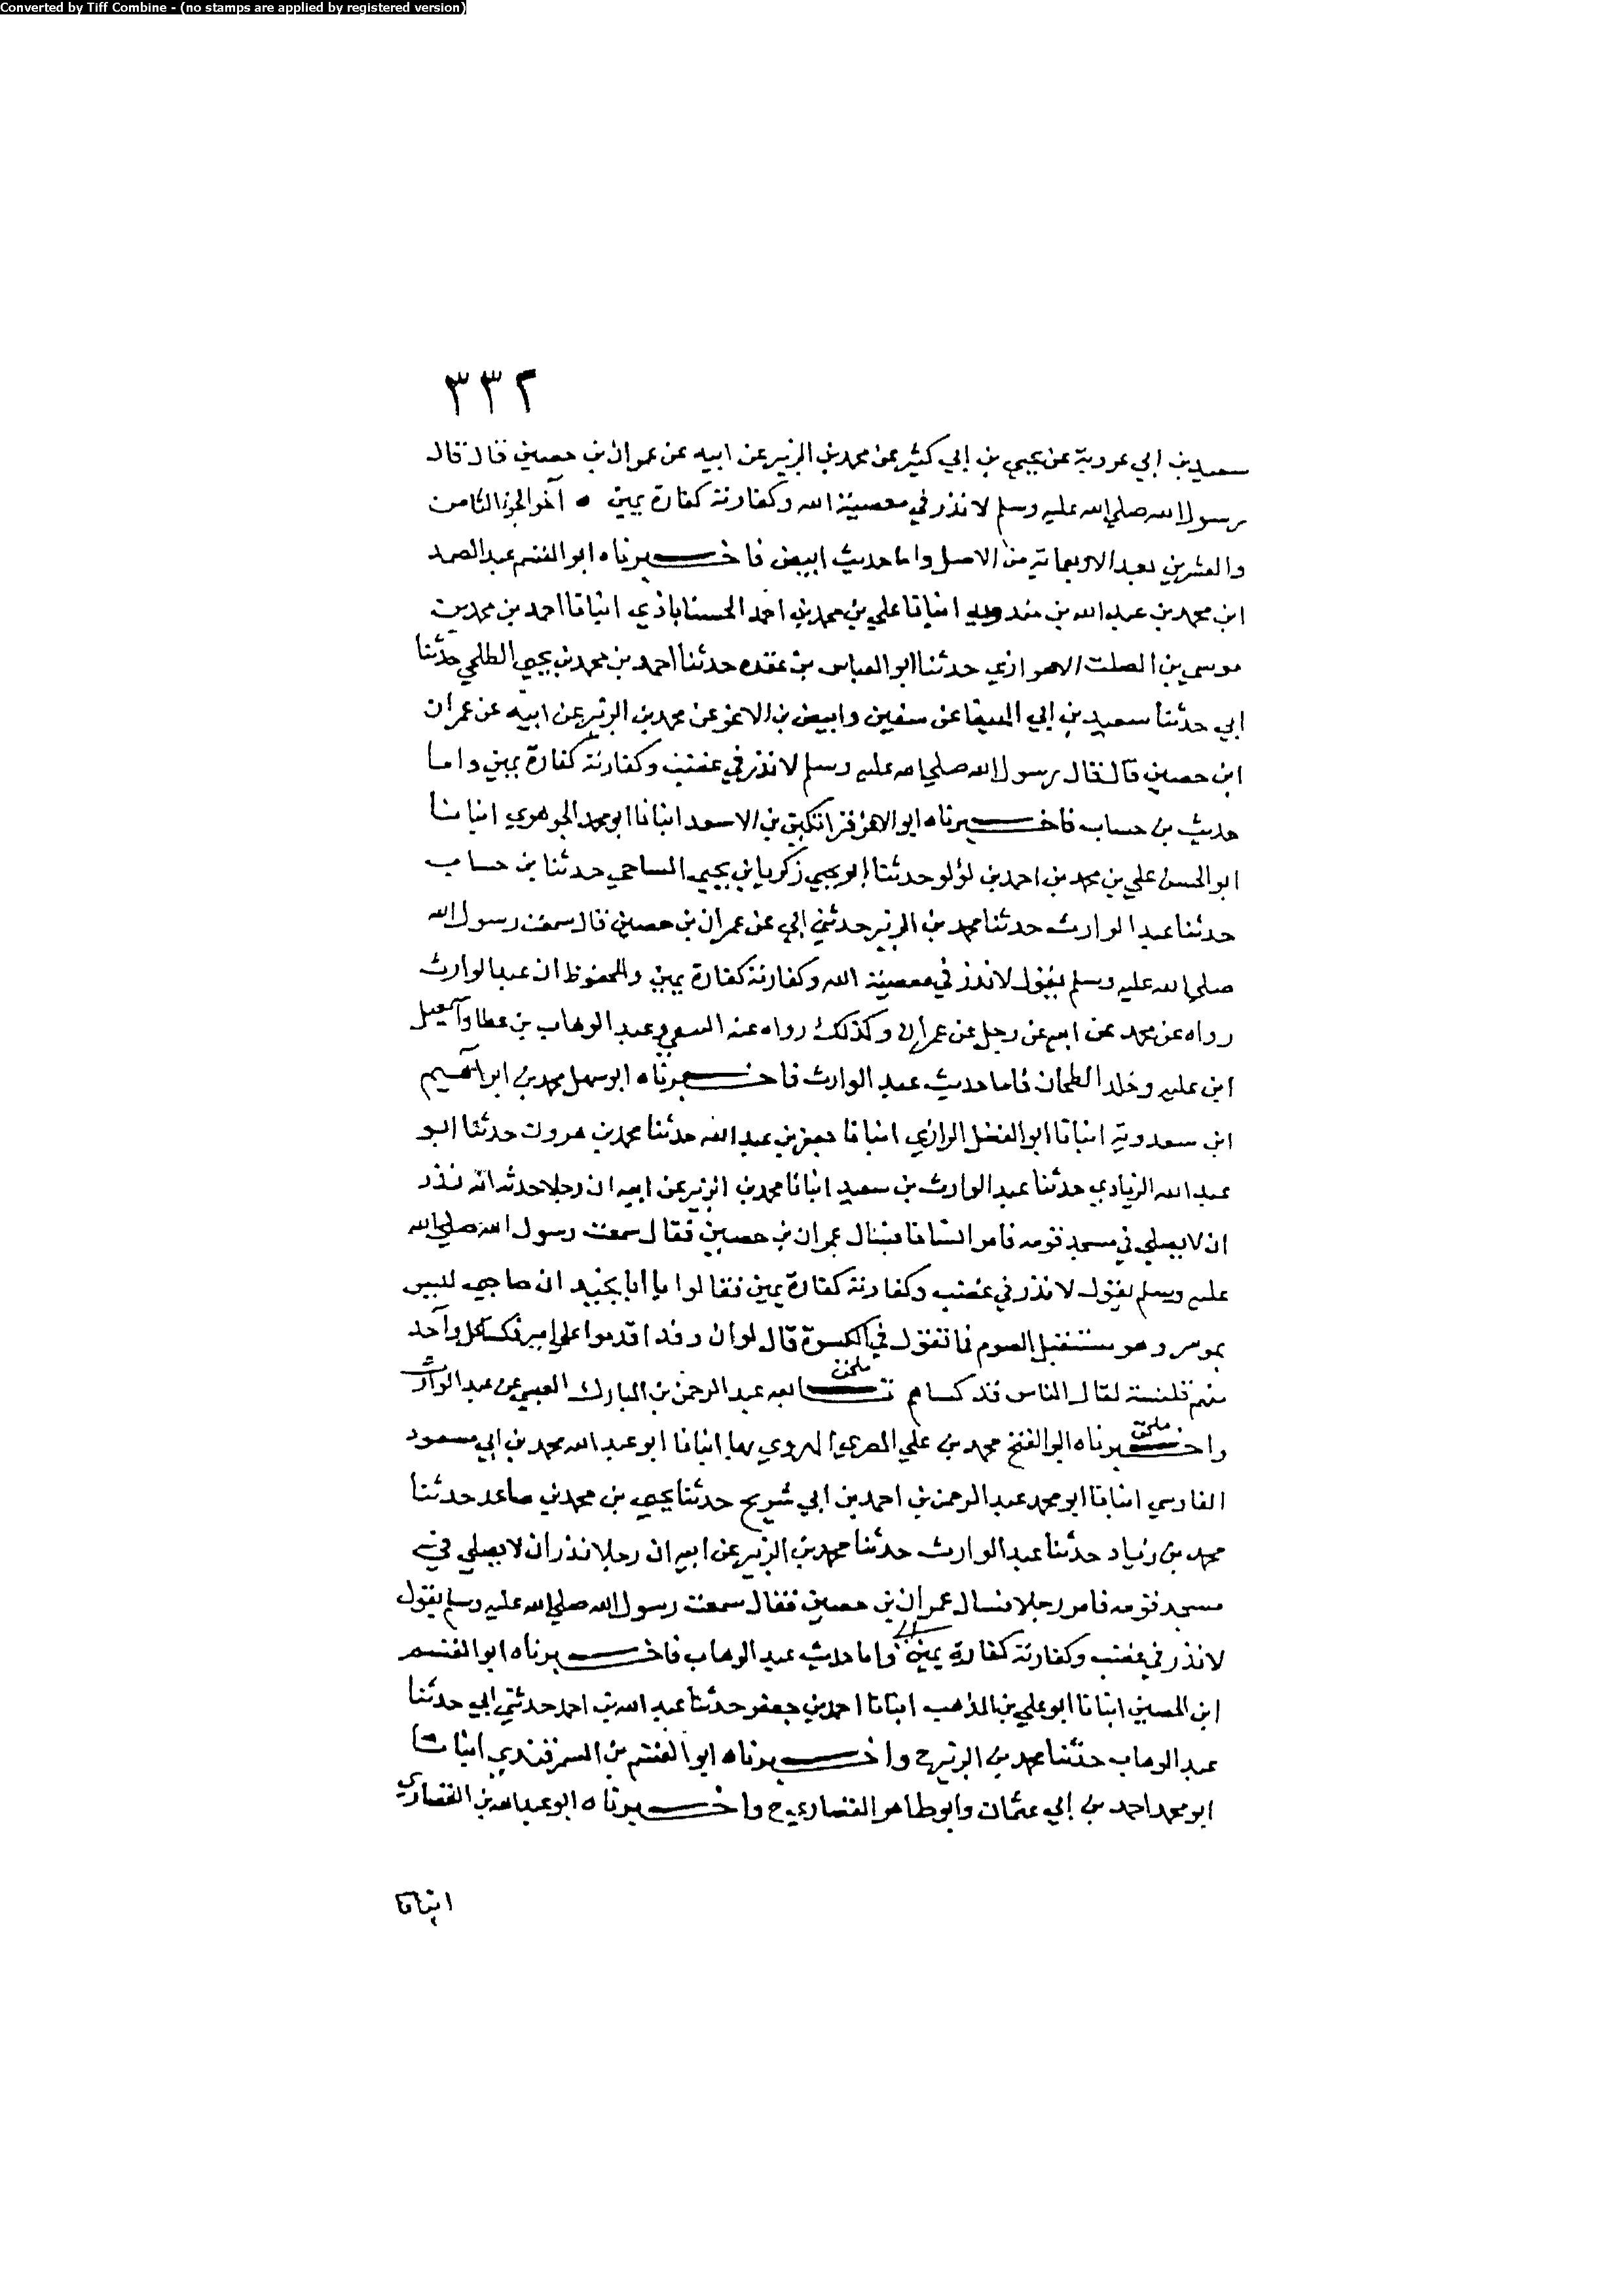 Converted by Tiff Combine - (no stamps are applied by registered version)
٣٣٢
سعيد بن ابي عروبة عن يحيى بن ابي كثير عن محمد بن الزبير عن ابيه عن عمران بن حصين قال قال
رسول الله صلي الله عليه وسلم لا نذر في معصية الله وكفارته كفارة يمين ه آخر الجزء الثامن
والعشرين بعد الاربعماية من الاصل واما حديث ابيض فاخبرناه ابو القسم عبد الصمد
ابن محمد بن عبد الله بن مندويه انباتا علي بن محمد بن احمد الحسناباذي انباتا احمد بن محمد بن
موسي بن الصلت الاهوازي حدثنا ابو العباس بن عقده حدثنا احمد بن محمد بن يحيى الطلحي حدثنا
ابي حدثنا سعيد بن ابي عن سفين وابيض بن الاغر عن محمد بن الزبير عن ابيه عن عمران
ابن حصين قال قال رسول الله صلي الله عليه وسلم لا نذر في غضب وكفارته كفارة يمين واما
حديث بن حساب فاخبرناه ابو الاعز قراتكين بن الاسعد انبانا ابو محمد الجوهري انبانا
ابو الحسن علي بن محمد بن احمد بن لؤلو حدثنا ابو يحيى زكريا بن يحيى الساجي حدثنا بن حساب
حدثنا عبد الوارث حدثنا محمد بن الزبير حدثني ابي عن عمران بن حصين قال سمعت رسول الله
صلي الله عليه وسلم يقول لا نذر في معصية الله وكفارته كفارة يمين والمحفوظ ان عبد الوارث
رواه عن محمد عن ابيه عن رجل عن عمران وكذلك رواه عنه عبد الوهاب بن عطا واسمعيل
ابن عليه وخلد الطحان فاما حديث عبد الوارث فاخبرناه ابو سهل محمد بن ابراهيم
ابن سعدوية انباتا ابو الفضل الرازي انباتا جعفر بن عبد الله حدثنا محمد بن هرون حدثنا ابو
عبد الله الزيادي حدثنا عبد الوارث بن سعيد انبانا محمد بن الزبير عن ابيه ان رجلا حدثه انه نذر
ان لا يصلي في مسجد قومه فامر انسانا فسال عمران بن حصين فقال سمعت رسول الله صلي الله
عليه وسلم يقول لا نذر في غضب وكفارته كفارة يمين فقالوا يا ابا نجيد ان صاحبي ليس
بموسر وهو مستقبل الصوم فما تقول في الكسوة قال لو ان وفدا قدموا علي امير فكسا كل واحد
منهم قلنسة لقال الناس قد كساهم تابعه عبد الرحمن بن المبارك العيسي عن عبد الوارث
واخبرناه ابو الفتح محمد بن علي المصري الهروي بها انبانا ابو عبد الله محمد بن ابي مسعود
الفارسي انبانا ابو محمد عبد الرحمن بن احمد بن ابي شريح حدثنا يحيى بن محمد بن صاعد حدثنا
محمد بن زنياد حدثنا عبد الوارث حدثنا محمد بن الزبير عن ابيه ان رجلا نذر ان لا يصلي في
مسجد قومه فامر رجلا فسال عمران بن حصين فقال سمعت رسول الله صلي الله عليه وسلم يقول
لا نذر في غضب وكفارته كفارة يمين واما حديث عبد الوهاب فاخبرناه ابو القسم
ابن الحصين انبانا ابو علي بن المذهب انبانا احمد بن جعفر حدثنا عبد الله بن احمد حدثني ابي حدثنا
عبد الوهاب حدثنا محمد بن الزبير ح واخبرناه ابو القسم بن السمرقندي انبانا
ابو محمد احمد بن ابي عثمان وابو طاهر القصاري ح واخبرناه ابو عبد الله بن القصاري
انبانا